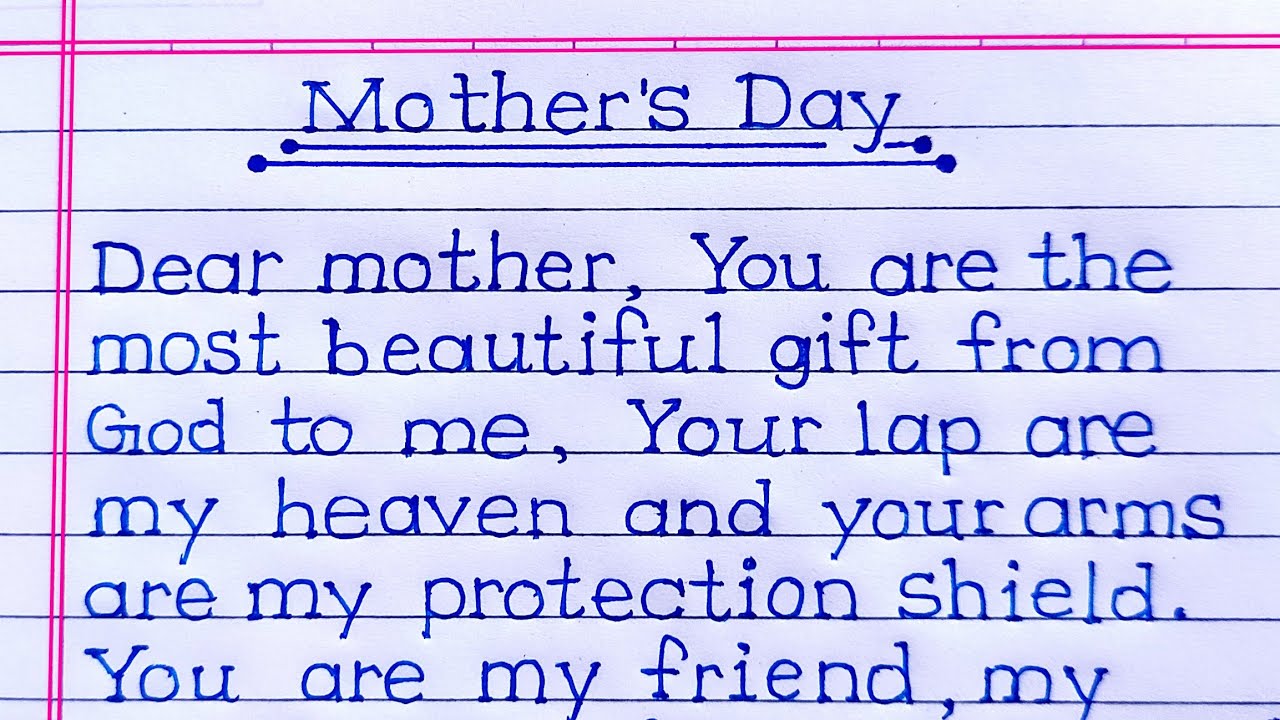 Mother's Day
Dear mother, You are the
most beautiful gift from
God to me, Your lap are
my heaven and your arms
are my protection shield.
You are my friend, my